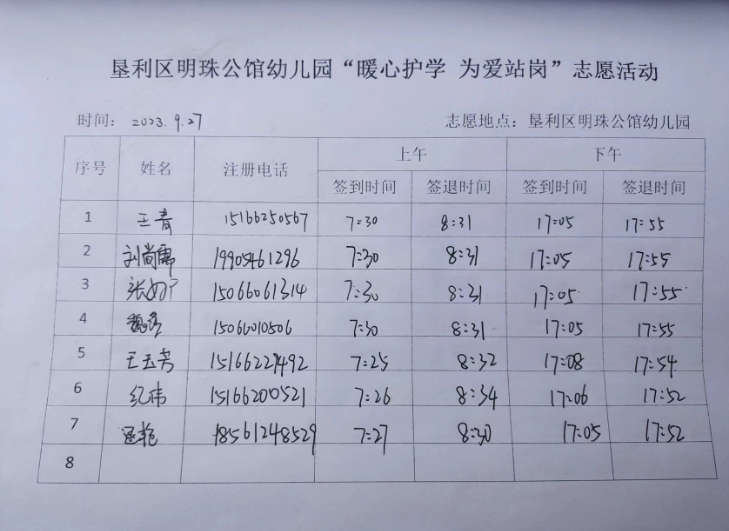 垦利区明珠公馆幼儿园“暖心护学 为爱站岗”志愿活动
时间： 2023.9.27 志愿地点：垦利区明珠公馆幼儿园
序号 姓名 注册电话 上午 下午
签到时间 签退时间 签到时间 签退时间
1 王青 15166250567 7:30 8:31 17:05 17:55
2 刘尚儒 19905461296 7:30 8:31 17:05 17:55
3 15066061314 7:30 8:31 17:05 17:55
4 15060010506 7:30 8:31 17:05 17:55
5 15166227492 7:25 8:32 17:08 17:54
6 纪伟 15166200521 7:26 8:34 17:06 17:52
7 18561248529 7:27 8:30 17:05 17:52
8